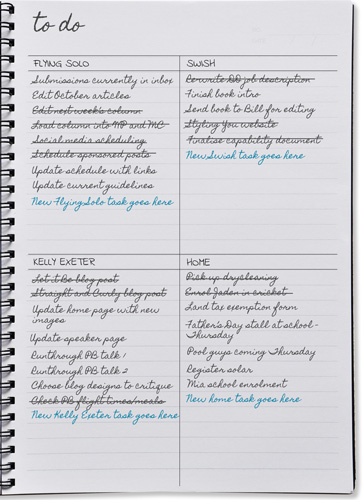 to do
FLYING SOLO
Submissions currently in inbox
Edit October articles
Edit next week's column
Load column into MP and MC
Social media scheduling
Schedule sponsored posts
Update schedule with links
Update current guidelines
New Flying Solo task goes here
SWISH
Re-write DD job description
Finish book intro
Send book to Bill for editing
Styling You website
Finalise capability document
New Swish task goes here
KELLY EXETER
Let it Be blog post
Straight and Curly blog post
Update home page with new
images
Update speaker page
Runthrough PB talk 1
Runthrough PB talk 2
Choose blog designs to critique
Check PB flight times/meals
New Kelly Exeter task goes here
HOME
Pick up drycleaning
Enrol Jaden in cricket
Land tax exemption form
Father's Day stall at school -
Thursday
Pool guys coming Thursday
Register solar
Mia school enrolment
New home task goes here